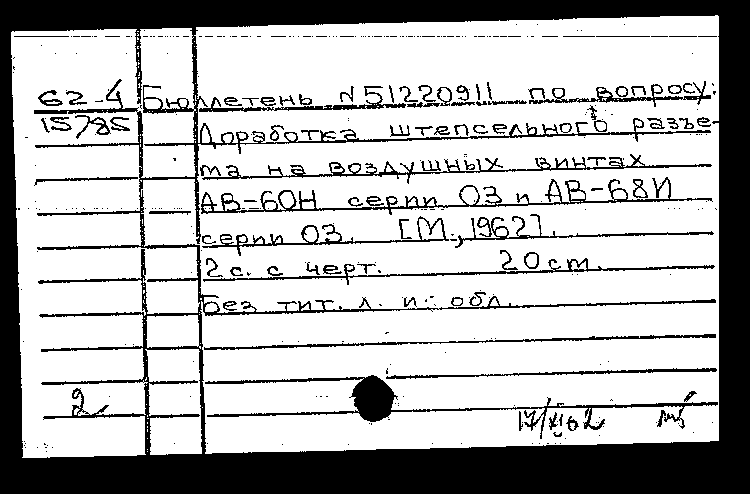 62-4 Бюллетень №51220911 по вопросу:
15785 Доработка штепсельного разъе-
ма на воздушных винтах
АВ-60Н серии 03 и АВ-68И
серии 03. [М., 1962].
2 с. с черт. 20 cm.
Без тит. л. и обл.
2
17/XI 62